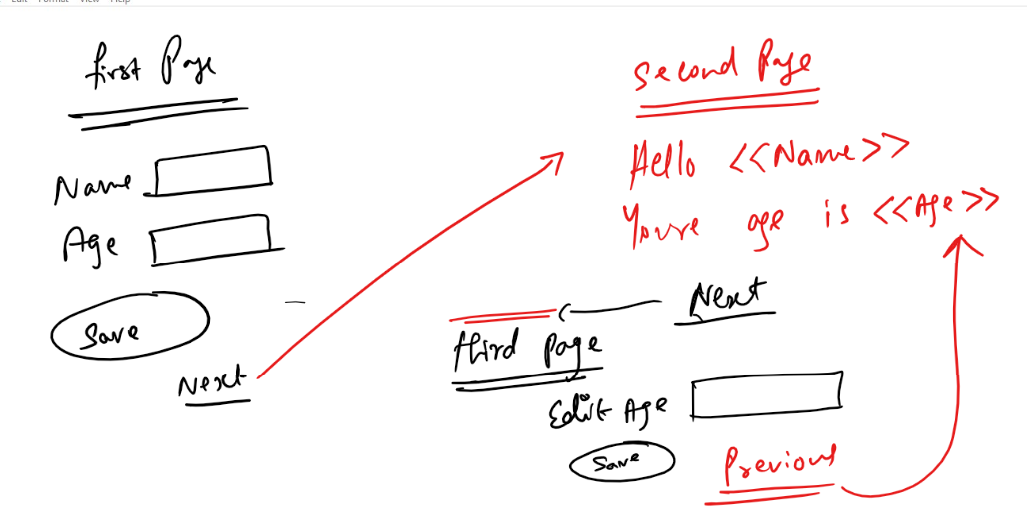 Edit Format View Help
First Page
Name
Age
Save
Next
Second Page
Hello <<Name>>
Youre age is <<Age>>
Next
third page
Edit Age
Save
Previous